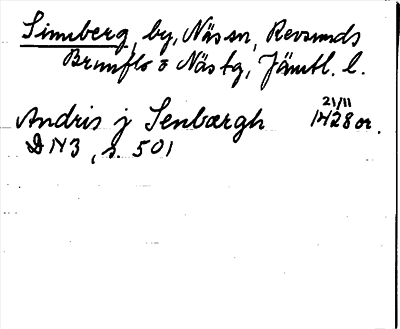 Sinnberg, by, Näs sn, Revsunds
Brunflo o Näs tg, Jämtl. l.
21/11
Andris j Senbærgh 1428 or.
DN3, s. 501